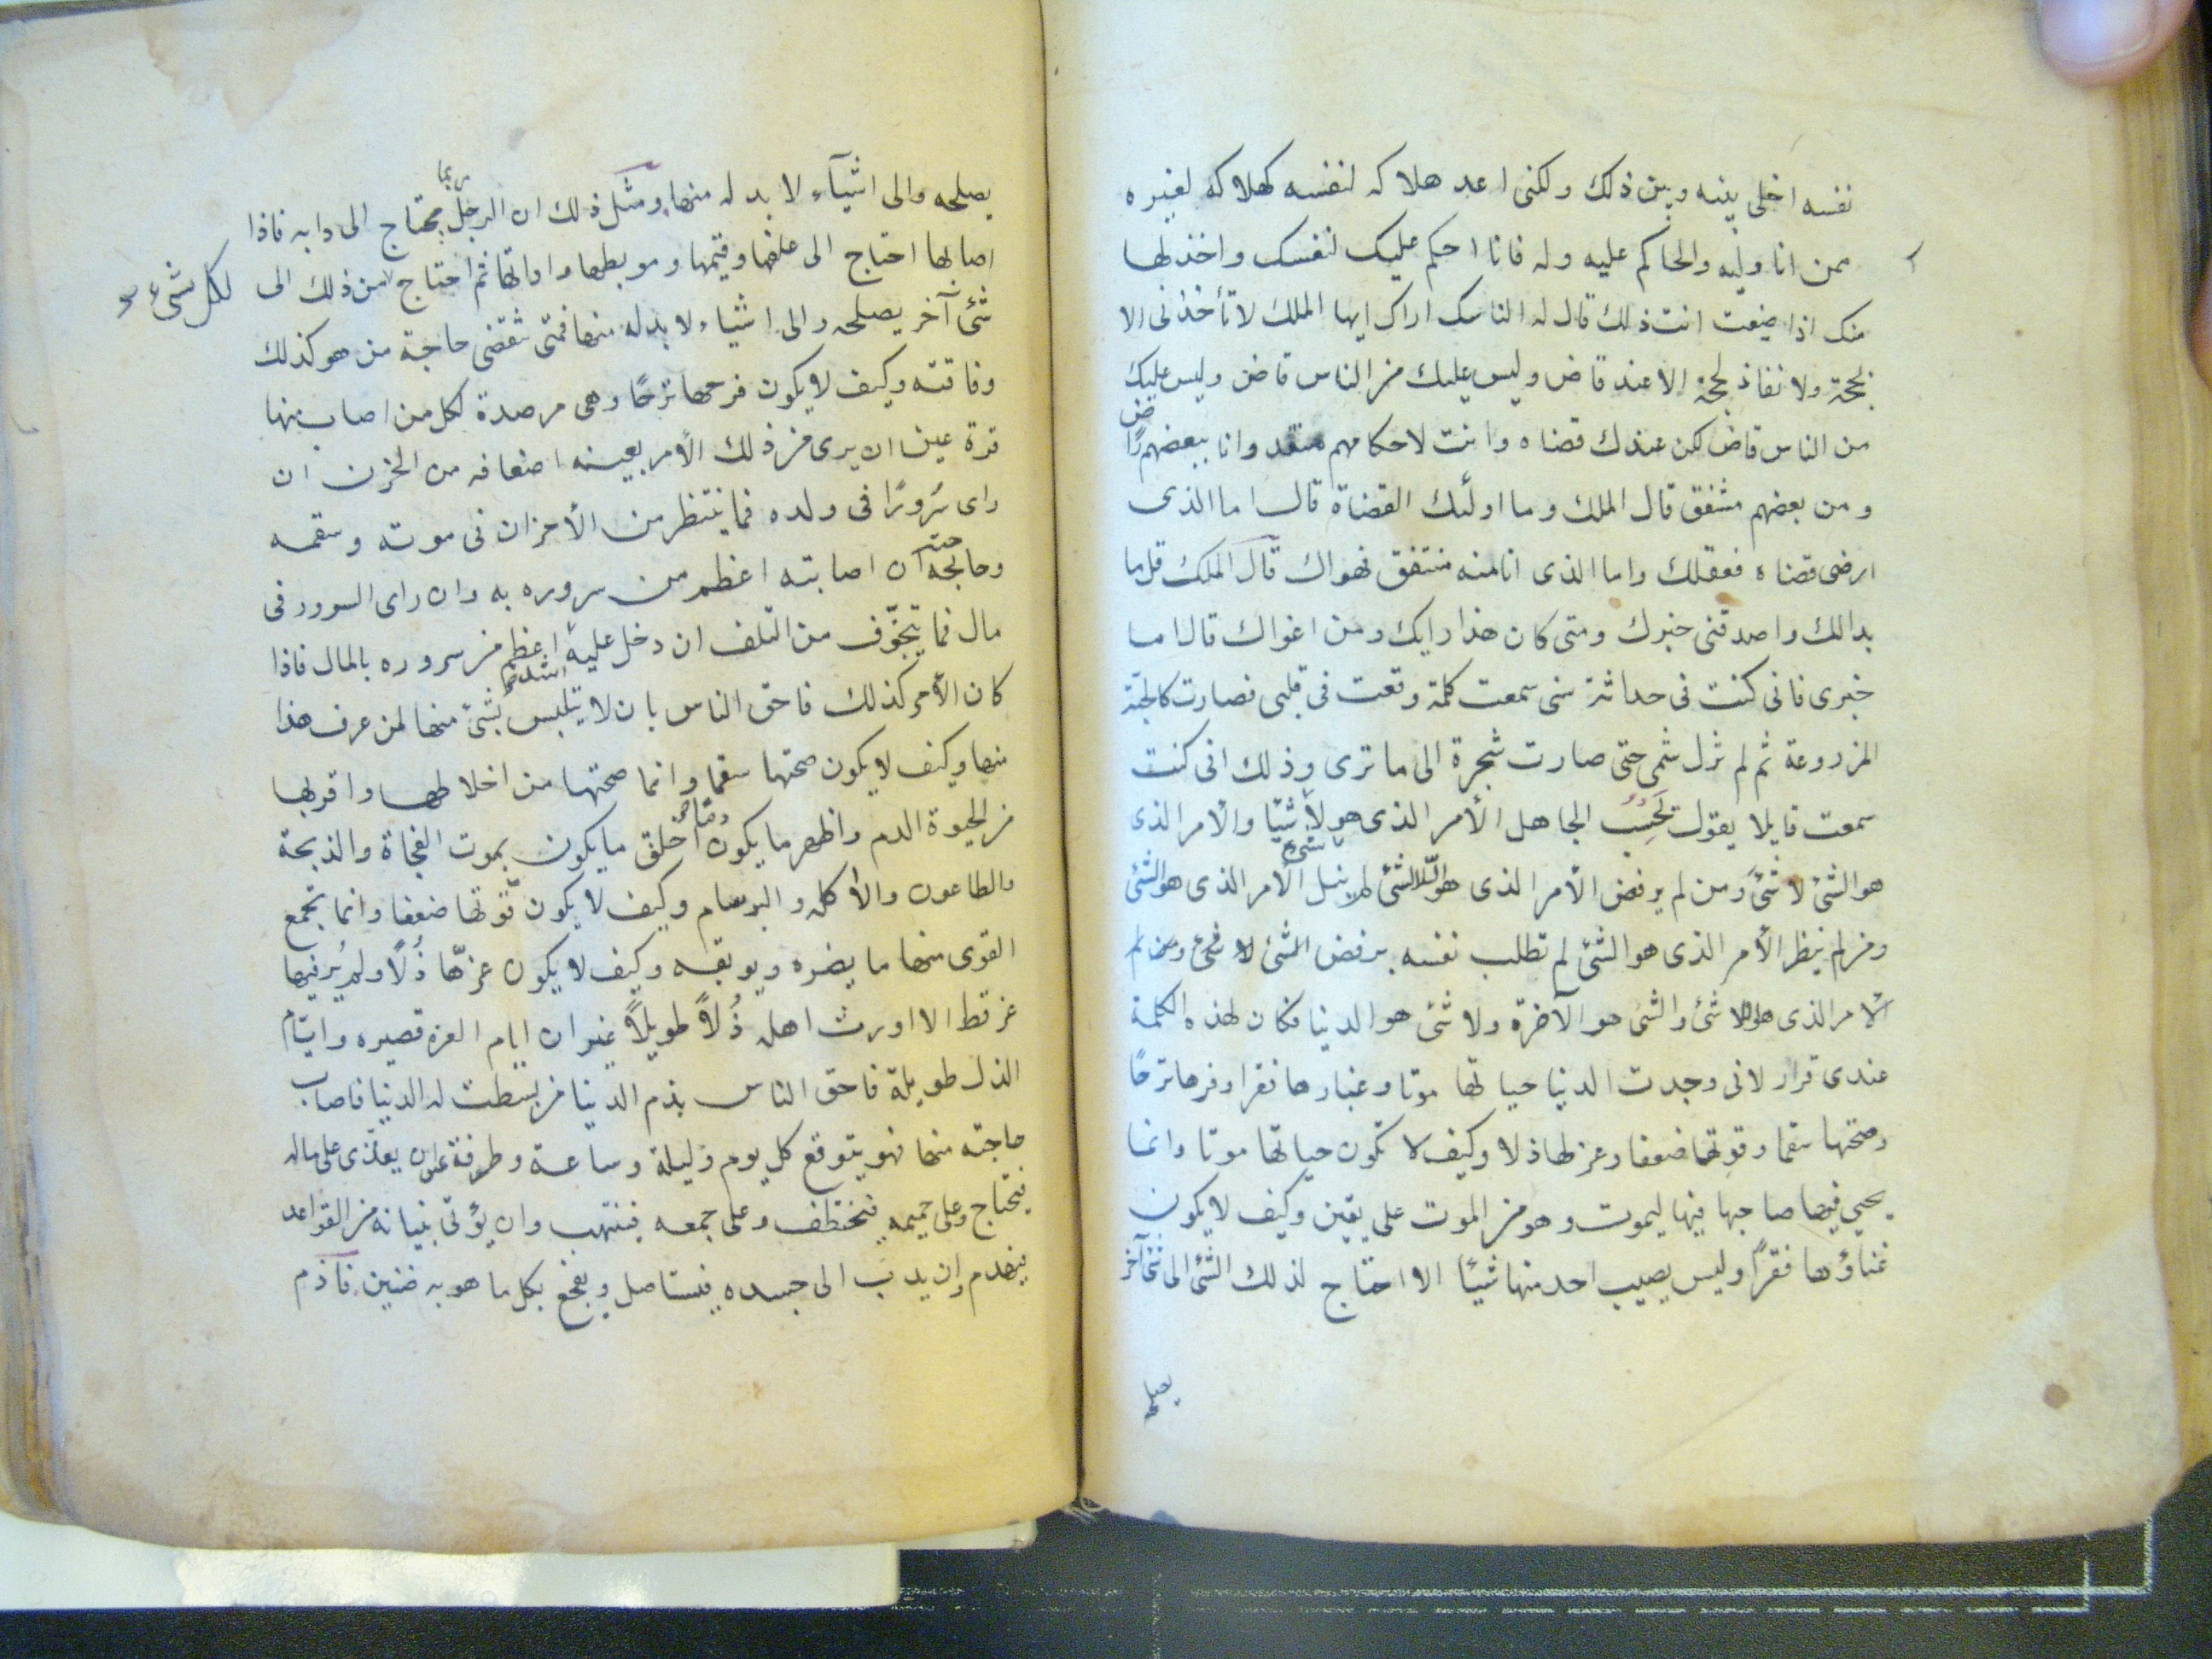 نفسه اخلى بينه وبين ذلك ولكنى اعد هلاكه لنفسه كهلاكه لغيره
ممن انا وليه والحاكم عليه وله فانا احكم عليك لنفسك واخذ لها
منك اذا ضيعت انت ذلك قال له الناسك اراك ايها الملك لا تأخذنى الا
بحجة ولا نفاذ لحجة الا عند قاض وليس عليك من الناس قاض وليس عليك
من الناس قاض لكن عندك قضاه وانت لاحكامهم منفذ وانا ببعضهم راض
ومن بعضهم مشفق قال الملك وما اولئك القضاة قال اما الذى
ارضى قضاه فعقلك واما الذى انا منه مشفق فهواك قال الملك قل ما
بدا لك واصدقنى خبرك ومتى كان هذا رايك ومن اغواك قال اما
خبرى فانى كنت فى حداثة سنى سمعت كلمة وقعت فى قلبى فصارت كالحبة
المزروعة ثم لم تزل تنمى حتى صارت شجرة الى ما ترى وذلك انى كنت
سمعت قايلا يقول يحسب الجاهل الأمر الذى هو لا شيئا والأمر الذى
هو الشئ لا شئ ومن لم يرفض الأمر الذى هو اللا شئ لم ينل الأمر الذى هو الشئ
ومن لم ينظر الأمر الذى هو الشئ لم تطلب نفسه برفض الشئ لا شئ ومن لم
الامر الذى هو لا شئ والشئ هو الآخرة ولا شئ هو الدنيا فكان لهذه الكلمة
عندى قرار لانى وجدت الدنيا حياتها موتا وغناءها فقرا وفرحها ترحًا
وصحتها سقما وقوتها ضعفا وعزلها ذلا وكيف لا تكون حياتها موتا وانما
يحيى فيها صاحبها فيها ليموت وهو من الموت على يقين وكيف لا يكون
غناؤها فقرًا وليس يصيب احد منها شيئًا الا احتاج لذلك الشئ الى شئ آخر
يصلحه
يصلحه والى اشيآء لا بد له منها ومثل ذلك ان الرجل ربما يحتاج الى دابه فاذا
اصابها احتاج الى علفها وقيمها ومربطها واداتها ثم احتاج من ذلك الى
لكل شئ
شئ آخر يصلحه والى اشياء لا بد له منها فمتى تنقضى حاجة من هو كذلك
وفاقته وكيف لا يكون فرحها ترحًا وهى مرصدة لكل من اصاب منها
قرة عين ان يرى من ذلك الأمر بعينه اضعافه من الحزن ان
راى سُرورًا فى ولده فما ينتظر من الأحزان فى موته وسقمه
وجايحة ان اصابته اعظم من سروره به وان راى السرور فى
مال فما يتخوّف من التلف ان دخل عليه اعظم من سروره بالمال فاذا
كان الأمر كذلك فاحق الناس بان لا يتلبس بشئ منها لمن عرف هذا
منها وكيف لا يكون صحتها سقما وانما صحتها من اخلاطها واقربها
من الحيوة الدم واظهر ما يكون دمًا اخلق ما يكون بموت الفجاة والذبحة
والطاعون والأكلة والبرسام وكيف لا يكون قوّتها ضعفا وانما تجمع
القوى منها ما يضره ويوبقه وكيف لا يكون عزّها ذُلًا ولم يُر فيها
عز قط الا اورث اهله ذُلًا طويلًا غير ان ايام العز قصيره وايّام
الذل طويلة فاحق الناس بذم الدنيا من بسطت له الدنيا فاصاب
حاجته منها فهو يتوقع كل يوم وليلة وساعة وطرفة عين ان يعدّى على ماله
فيجتاح وعلى حميمه فيختطف وعلى جمعه فينتهب وان يؤتى بنيانه من القواعد
فيهدم وان يدب الى جسده فيستاصل ويفجع بكل ما هو به ضنين فاذم